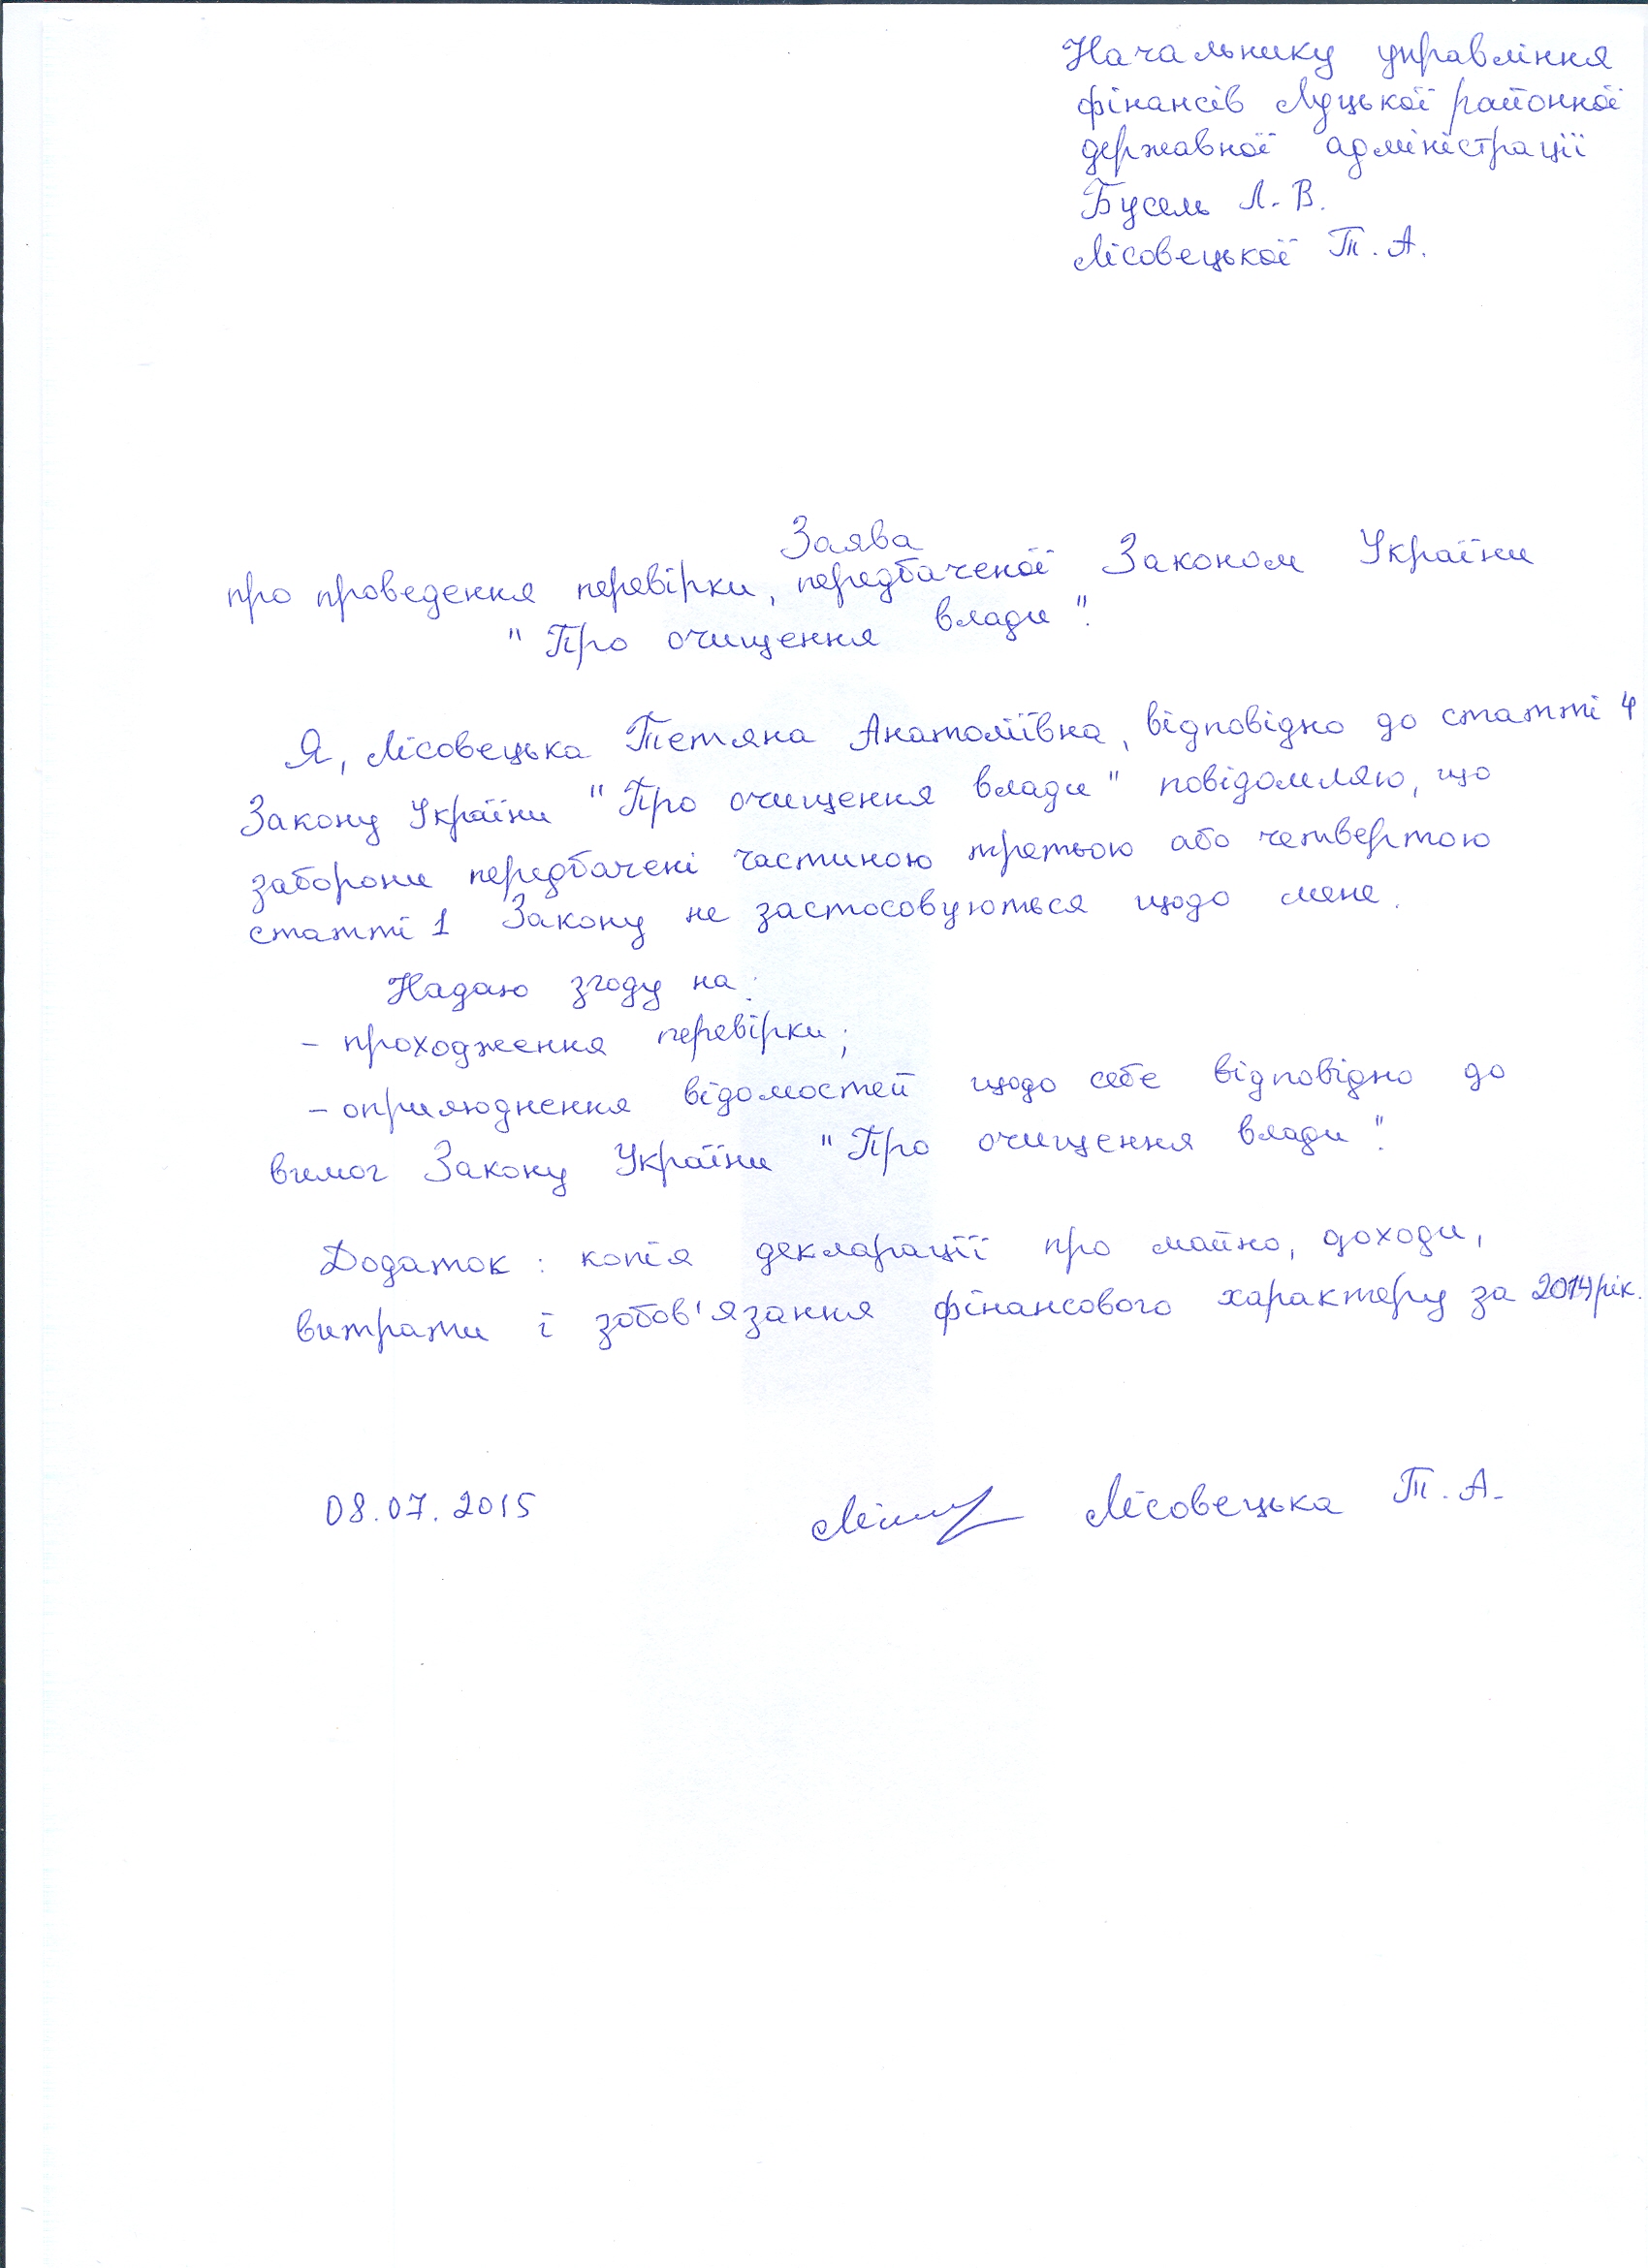 Начальнику управління
фінансів Луцької районної
державної адміністрації
Бусель Л.В.
Лісовецької Т.А.
Заява
про проведення перевірки, передбаченої Законом України
"Про очищення влади".
Я, Лісовецька Тетяна Анатоліївна, відповідно до статті 4
Закону України "Про очищення влади" повідомляю, що
заборони передбачені частиною третьою або четвертою
статті 1 Закону не застосовуються щодо мене.
Надаю згоду на:
- проходження перевірки;
- оприлюднення відомостей щодо себе відповідно до
вимог Закону України "Про очищення влади".
Додаток: копія декларації про майно, доходи,
витрати і зобов'язання фінансового характеру за 2014 рік.
08.07.2015 Лісовецька Т.А.